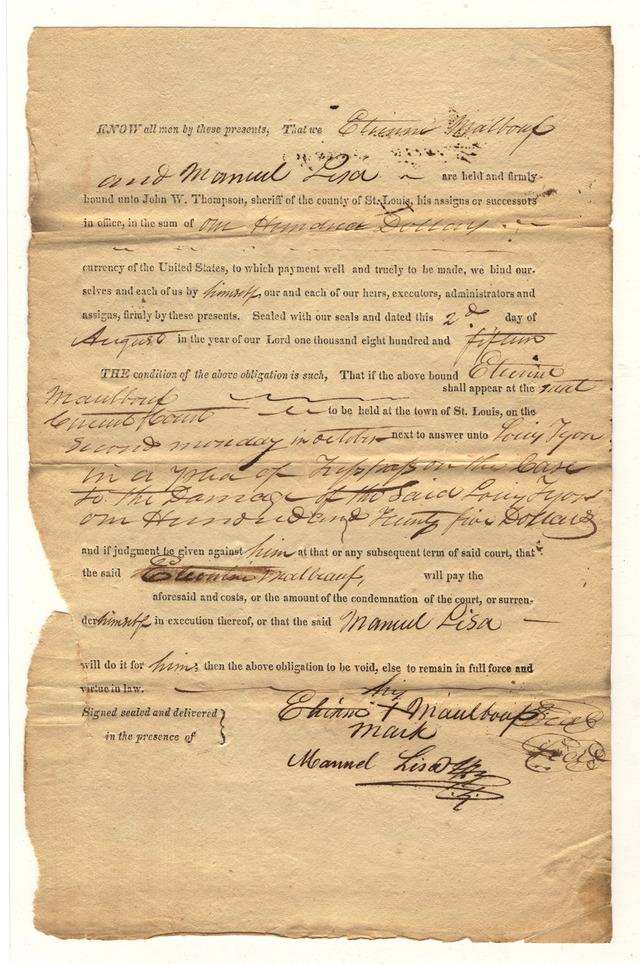 KNOW all men by these presents, That we Etienne Malbouf
and Manuel Lisa are held and firmly
bound unto John W. Thompson, sheriff of the county of St. Louis, his assigns or successors
in office, in the sum of One Hundred Dollars
currency of the United States, to which payment well and truely to be made, we bind our-
selves and each of us by himself our and each of our heirs, executors, administrators and
assigns, firmly by these presents. Sealed with our seals and dated this 2d day of
August in the year of our Lord one thousand eight hundred and fifteen
THE condition of the above obligation is such, That if the above bound Etienne
Maulbouf shall appear at the next
Circuit Court to be held at the town of St. Louis, on the
Second monday in october next to answer unto Louis Tyon
in a plea of Trespass on the Case
to the Damage of the Said Louis Tyon
One Hundred and Twenty five Dollars
and if judgment be given against him at that or any subsequent term of said court, that
the said Etienne Malbauf, will pay the
aforesaid and costs, or the amount of the condemnation of the court, or surren-
der himself in execution thereof, or that the said Manuel Lisa
will do it for him; then the above obligation to be void, else to remain in full force and
virtue in law.
Signed sealed and delivered }
in the presence of
his
Etienne + Maulbouf Seal
mark
Manuel Lisa Seal